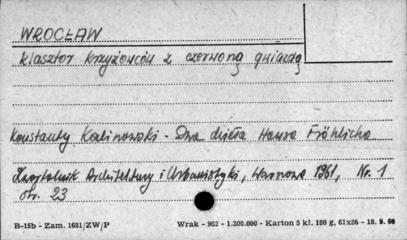 WROCŁAW
klasztor Krzyżowców z czerwoną gwiazdą
Konstanty Kalinowski - Dwa dzieła Hansa Fröhlicha
Kwartalnik Architektury i Urbanistyki, Warszawa 1961, Nr. 1
str. 23
B-15b - Zam. 1681/ZW/P Wrak - 962 - 1.300.000 - Karton 5 kl. 180 g, 61x26 - 10. 9. 60